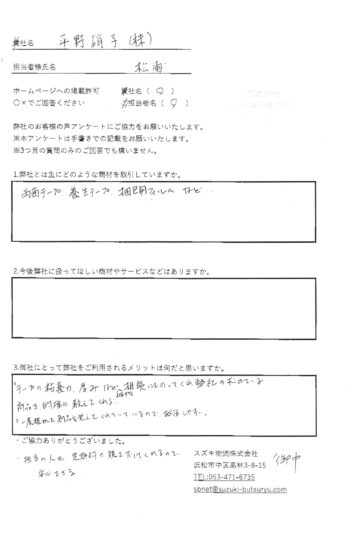 貴社名 平野硝子(株)
担当者様氏名 松浦
ホームページへの掲載許可 貴社名(○)
○×でご回答ください ご担当者名(○)
弊社のお客様の声アンケートにご協力をお願いいたします。
※本アンケートは手書きでの記載をお願いいたします。
※3つ目の質問のみのご回答でも構いません。
1.弊社とは主にどのような商材を取引していますか。
両面テープ 養生テープ 梱包用フィルム など…
2.今後弊社に扱ってほしい商材やサービスなどはありますか。
3.御社にとって弊社をご利用されるメリットは何だと思いますか。
テープの粘着力、厚みなど、相談にものってくれ弊社の求めている
商品を的確に教えてくれる。
在庫
発注しやすい。
・ご協力ありがとうございました。
・担当の人が、定期的に顔を出してくれるので、
安心できる
スズキ物流株式会社 御中
浜松市中区高林3-8-15
TEL:053-471-6735
sbnet@suzuki-butsuryu.com